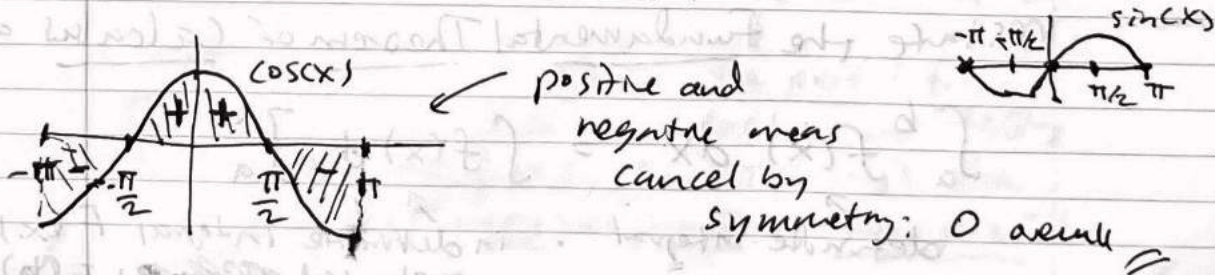 cos(x)
-π
-π/2
π/2
π
positive and
negative areas
cancel by
symmetry: 0 overall
sin(x)
-π -π/2
π/2 π